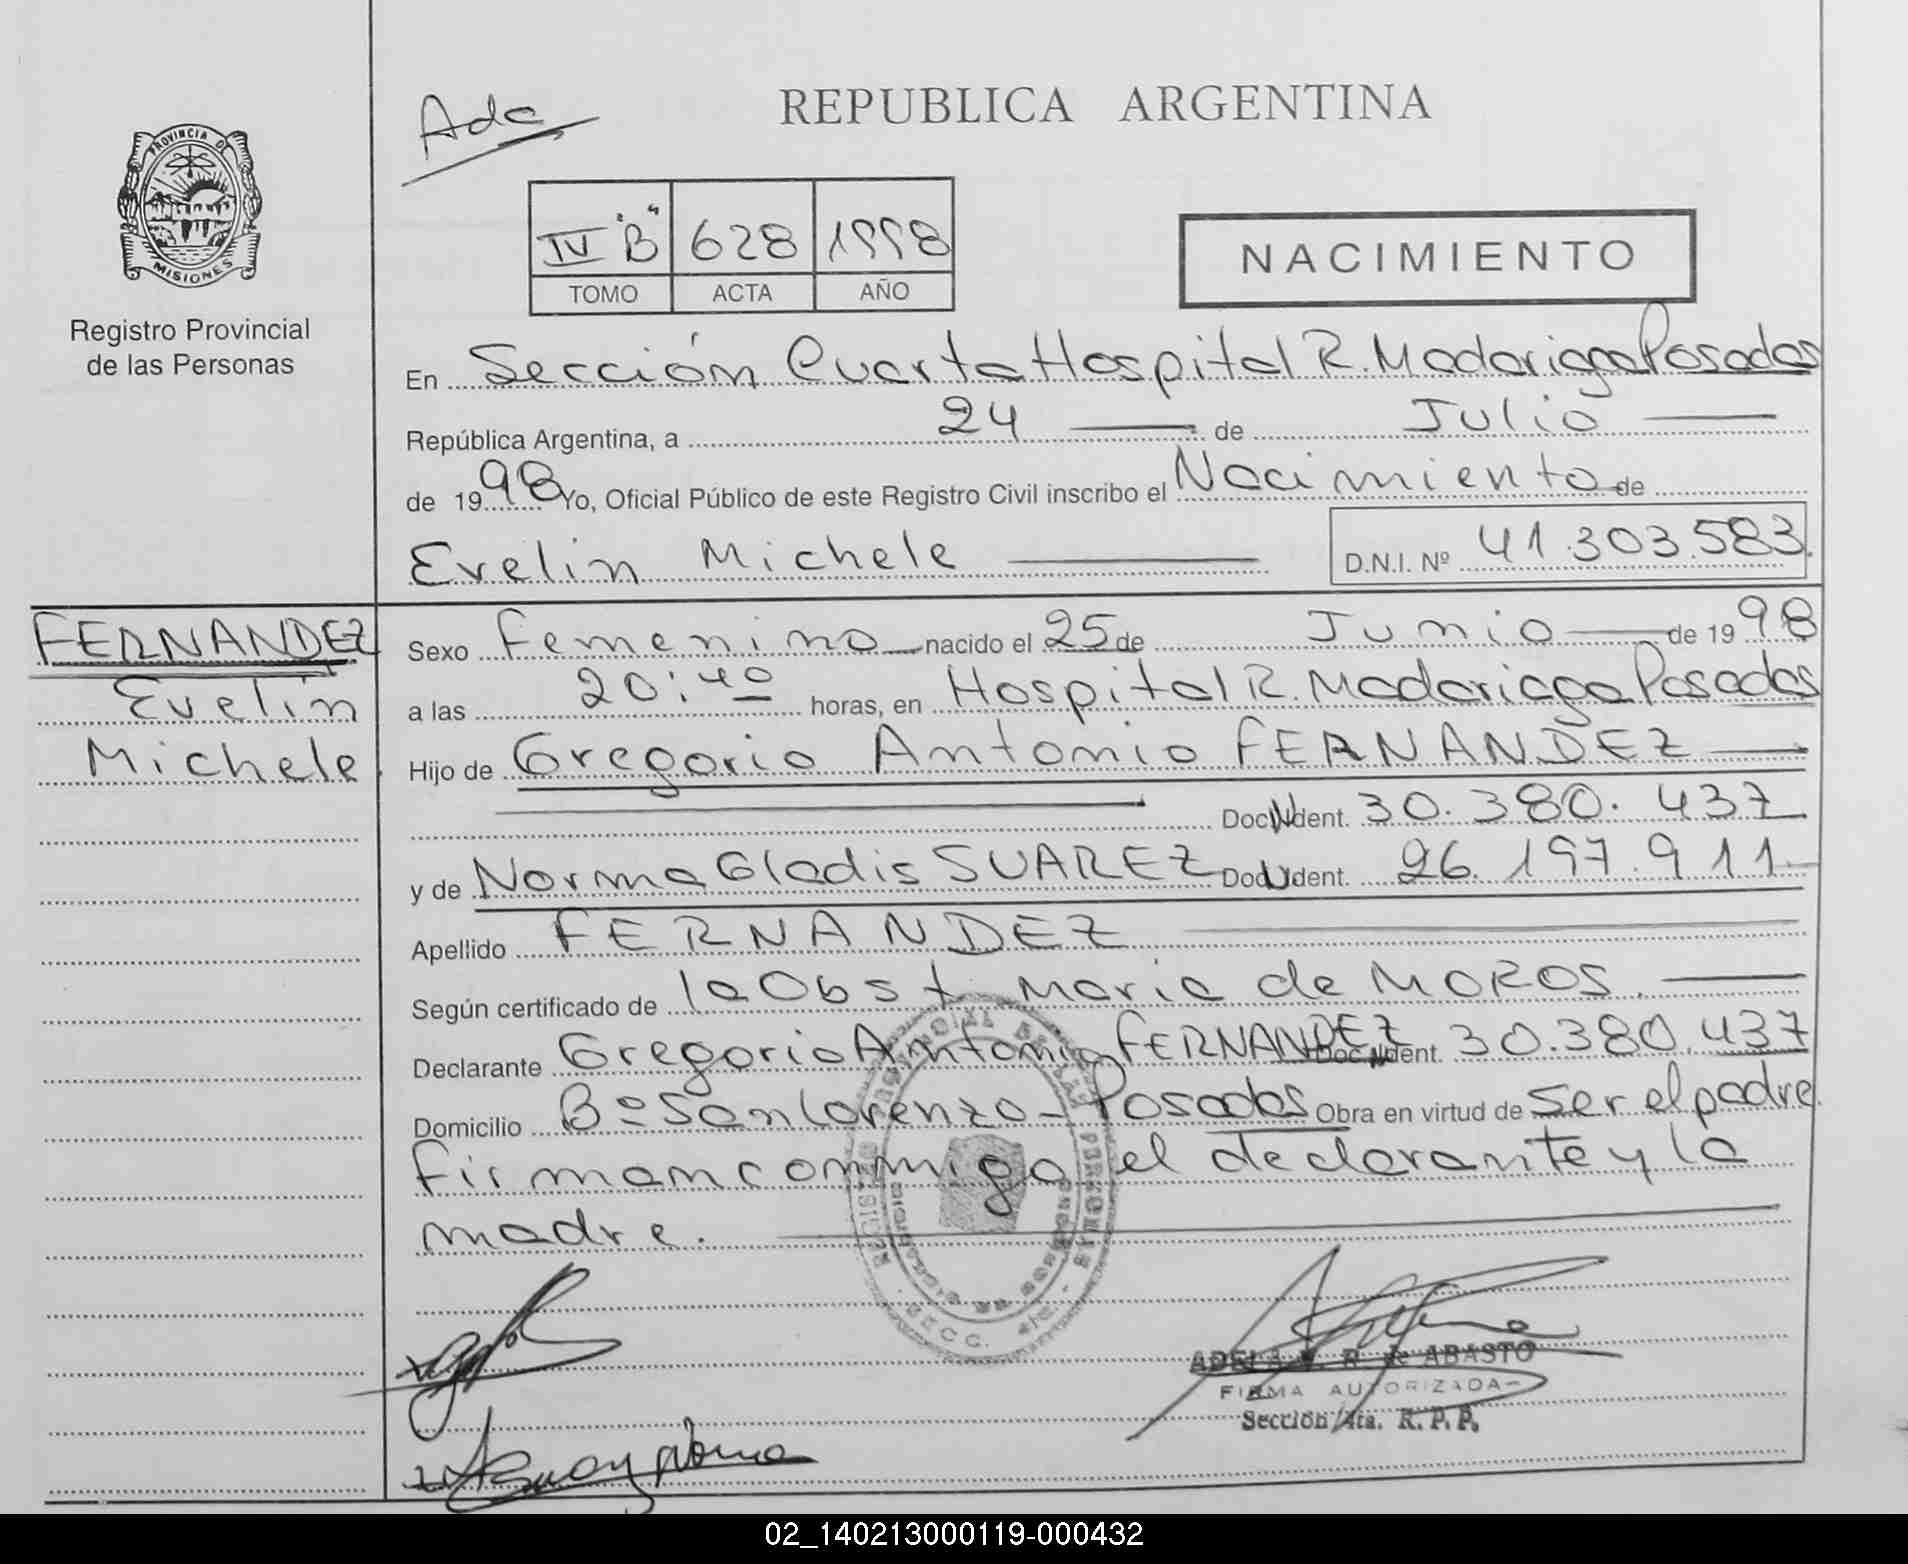 PROVINCIA D
MISIONES
Registro Provincial
de las Personas
FERNANDEZ
Evelin
Michele
Ada
REPUBLICA ARGENTINA
IV "B" 628 1998
TOMO ACTA AÑO
NACIMIENTO
En Sección Cuarta Hospital R. Madariaga Posadas
República Argentina, a 24 de Julio
de 1998 Yo, Oficial Público de este Registro Civil inscribo el Nacimiento de
Evelin Michele D.N.I. Nº 41.303.583
Sexo Femenino nacido el 25 de Junio de 1998
a las 20:40 horas, en Hospital R. Madariaga Posadas
Hijo de Gregorio Antonio FERNANDEZ
Doc. Ident. 30.380.437
y de Norma Gladis SUAREZ Doc. Ident. 26.197.911
Apellido FERNANDEZ
Según certificado de la Obst. Maria de MOROS.
Declarante Gregorio Antonio FERNANDEZ Doc. Ident. 30.380.437
Domicilio Bº San Lorenzo - Posadas Obra en virtud de ser el padre
firman conmigo el declarante y la
madre.
DE LAS PERSONAS
SECC. 4ta.
de ABASTO
FIRMA AUTORIZADA
Sección 4ta. R.P.P.
02_140213000119-000432